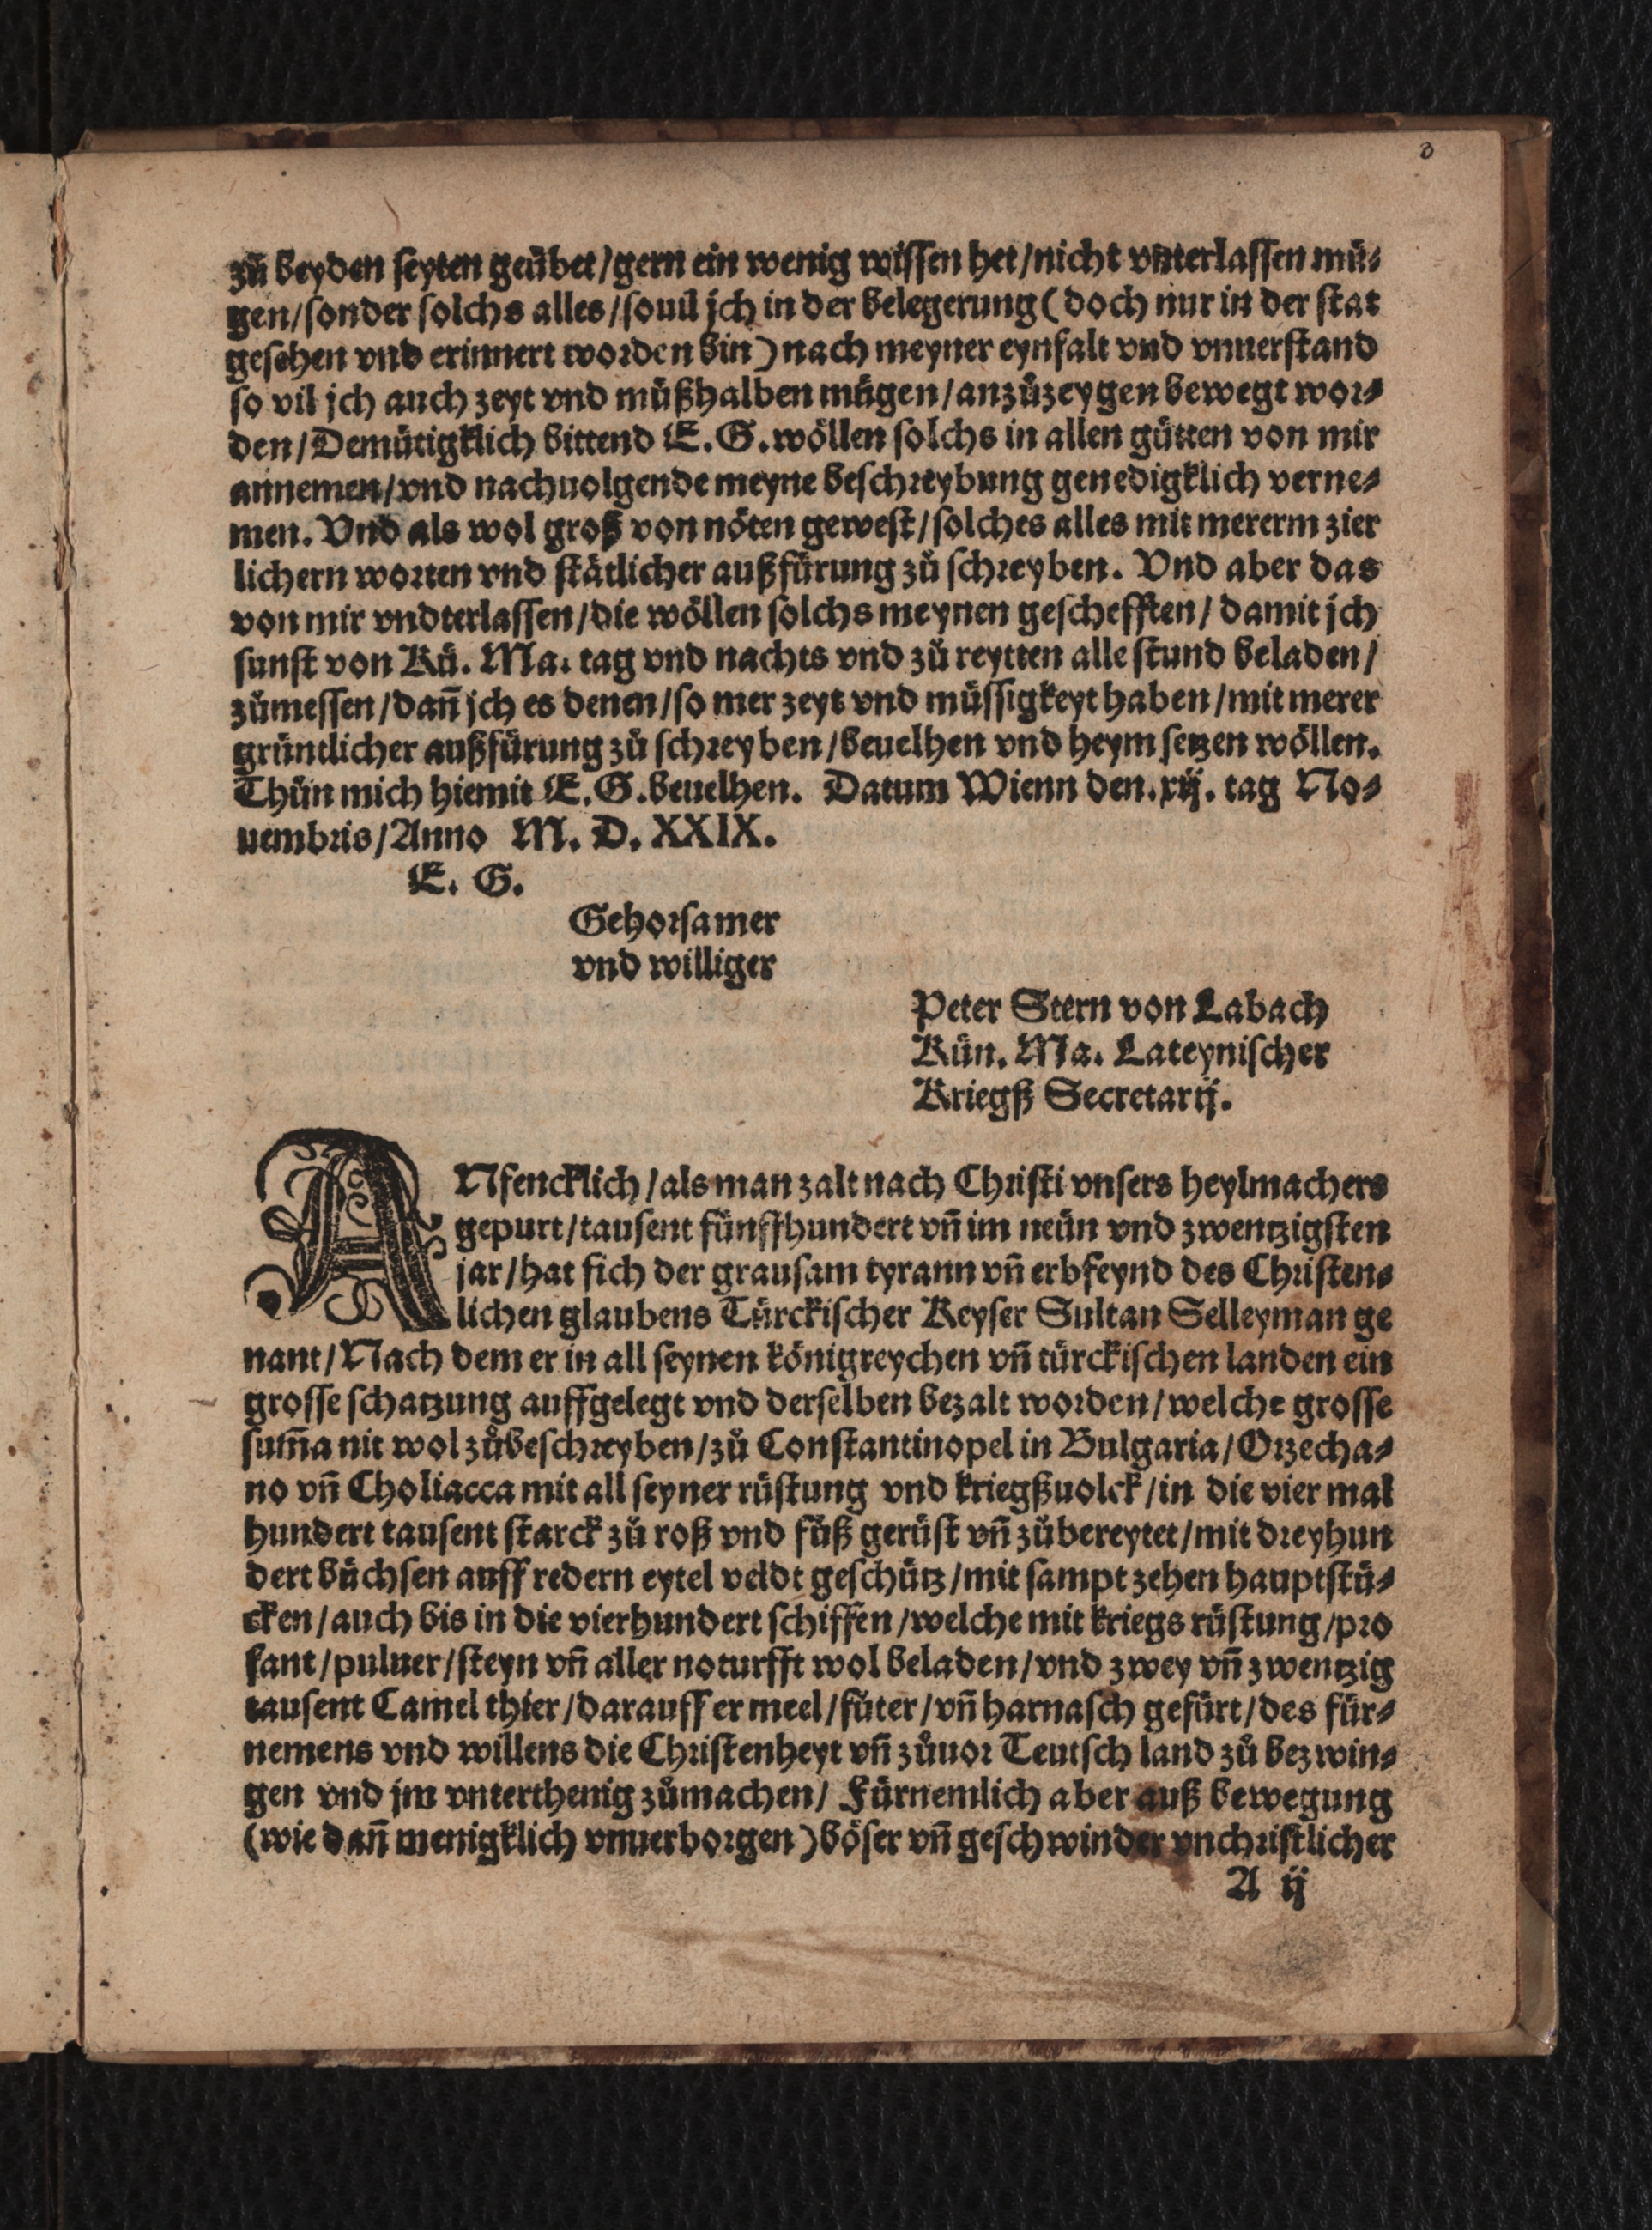 zů beyden seyten geůbet/gern ein wenig wissen het/nicht vnterlassen mü⸗
gen/sonder solchs alles/souil jch in der belegerung (doch nur in der stat
gesehen vnd erinnert worden bin) nach meyner eynfalt vnd vnuerstand
so vil jch auch zeyt vnd můßhalben mügen/anzůzeygen bewegt wor⸗
den/Demütigklich bittend E. G. wöllen solchs in allen gütten von mir
annemen/vnd nachuolgende meyne beschreybung genedigklich verne⸗
men. Vnd als wol groß von nöten gewest/solches alles mit mererm zier
lichern worten vnd stätlicher außfürung zů schreyben. Vnd aber das
von mir vndterlassen/die wöllen solchs meynen geschefften/damit jch
sunst von Kü. Ma. tag vnd nachts vnd zů reytten alle stund beladen/
zůmessen/dañ jch es denen/so mer zeyt vnd müssigkeyt haben/mit merer
gründtlicher außfürung zů schreyben/beuelhen vnd heym setzen wöllen.
Thůn mich hiemit E. G. beuelhen. Datum Wienn den. xij. tag No⸗
uembris/Anno M. D. XXIX.
E. G.
Gehorsamer
vnd williger
Peter Stern von Labach
Kün. Ma. Lateynischer
Kriegß Secretarij.
ANfencklich/als man zalt nach Christi vnsers heylmachers
gepurt/tausent fünffhundert vñ im neün vnd zwentzigsten
jar/hat sich der grausam tyrann vñ erbfeynd des Christen⸗
lichen glaubens Türckischer Keyser Sultan Selleyman ge
nant/Nach dem er in all seynen königreychen vñ türckischen landen ein
grosse schatzung auffgelegt vnd derselben bezalt worden/welche grosse
sum̃a nit wol zůbeschreyben/zů Constantinopel in Bulgaria/Orzecha⸗
no vñ Choliacca mit all seyner rüstung vnd kriegßuolck/in die vier mal
hundert tausent starck zů roß vnd fůß gerüst vñ zůbereytet/mit dreyhun
dert büchsen auff redern eytel veldt geschütz/mit sampt zehen hauptstü⸗
cken/auch bis in die vierhundert schiffen/welche mit kriegs rüstung/pro
fant/puluer/steyn vñ aller noturfft wol beladen/vnd zwey vñ zwentzig
tausent Camel thier/darauff er meel/fůter/vñ harnasch gefürt/des für⸗
nemens vnd willens die Christenheyt vñ zůuor Teutsch land zů bezwin⸗
gen vnd jm vnterthenig zůmachen/Fürnemlich aber auß bewegung
(wie dañ menigklich vnuerborgen) böser vñ geschwinder vnchristlicher
A ij